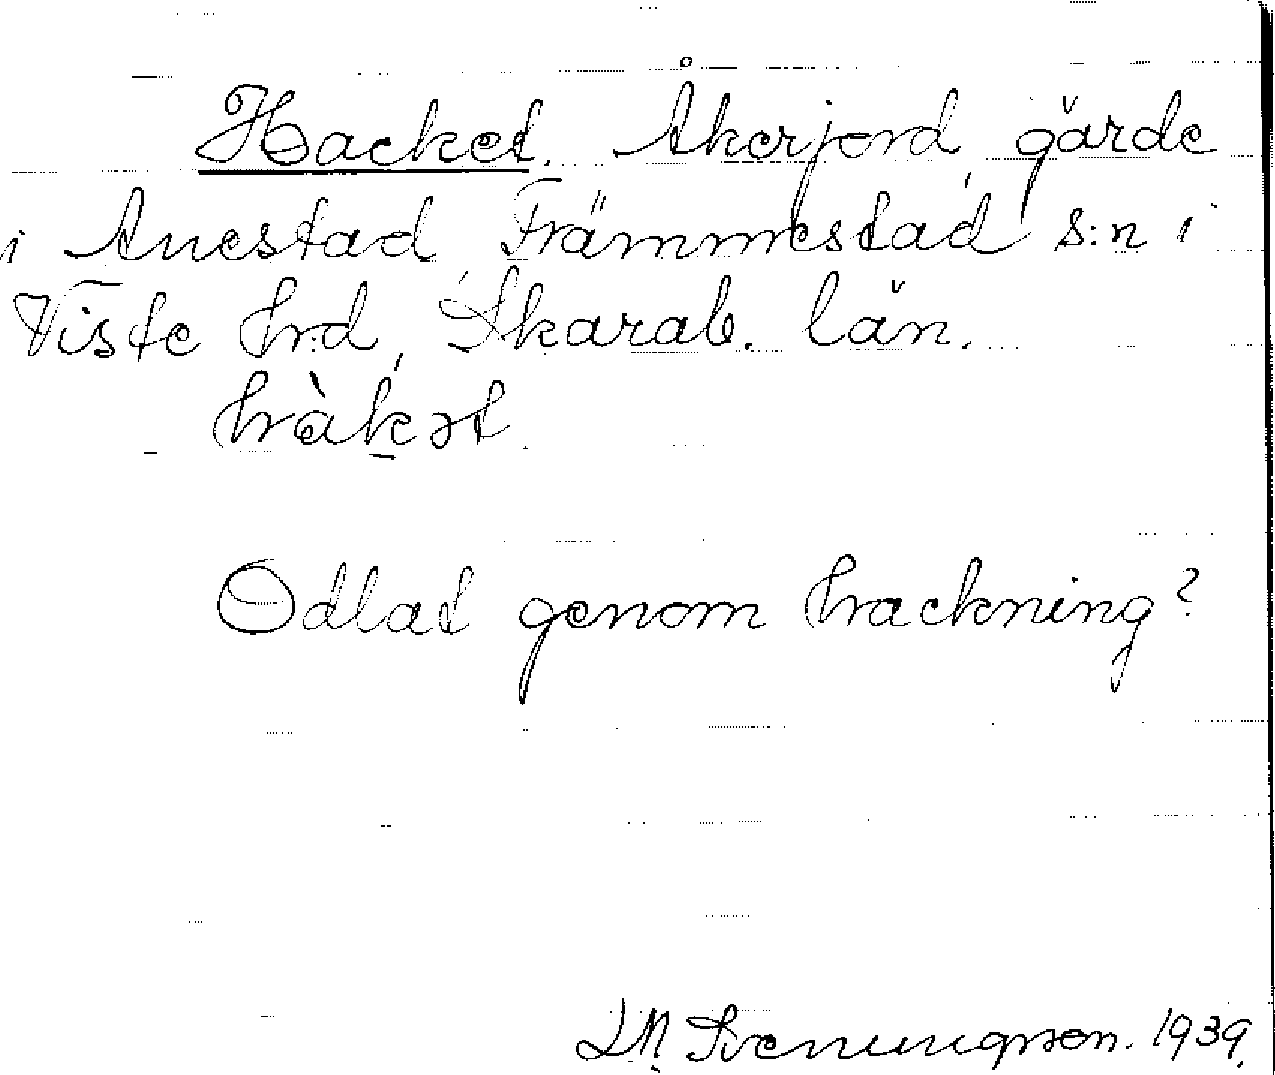 Hacket. Åkerjord gärde
i Anestad, Främmestad s:n i
Viste hrd, Skarab. län.
hàkət.
Odlat genom hackning?
L M Svenungsson. 1939.